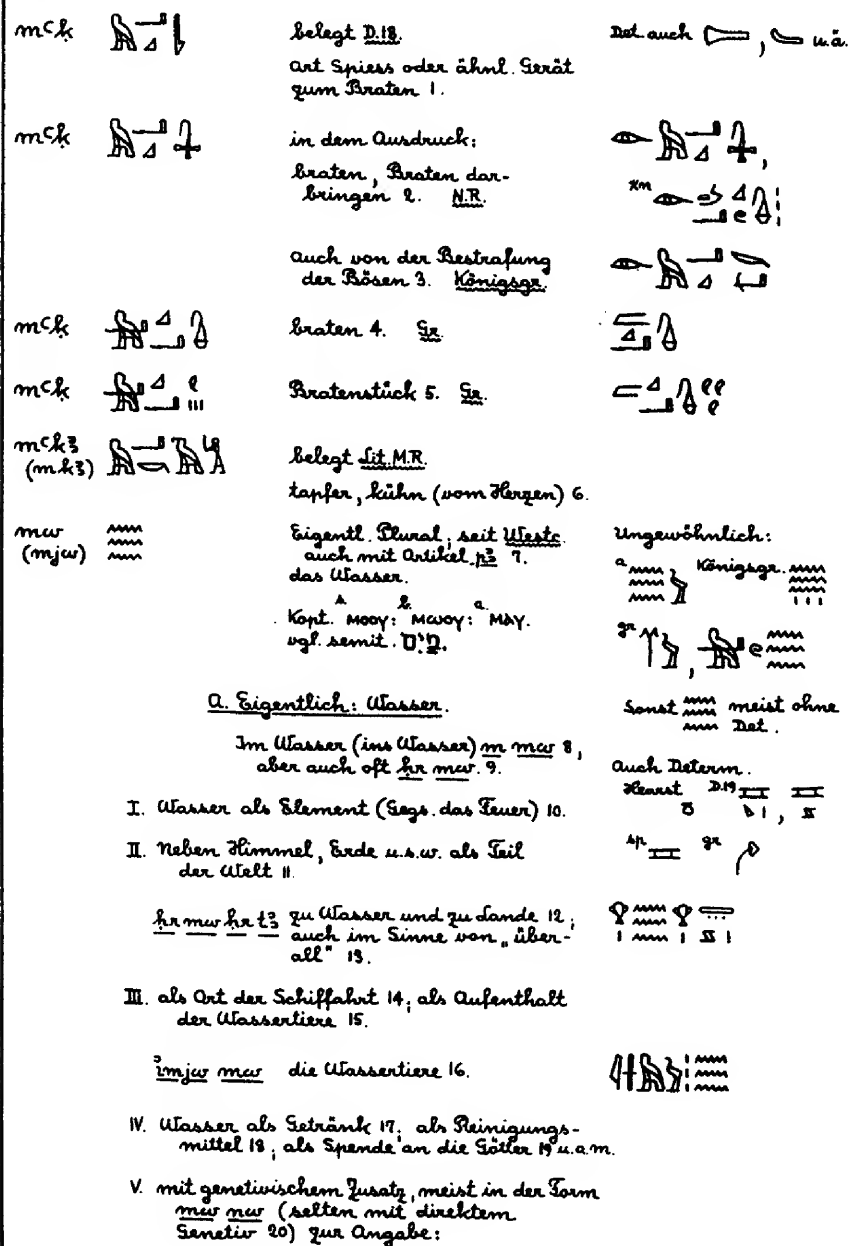 mꜥḳ belegt D.18. Det. auch , u.ä.
Art Spiess oder ähnl. Gerät
zum Braten 1.
mꜥḳ in dem Ausdruck:
braten, Braten dar-
bringen 2. N.R.
auch von der Bestrafung
der Bösen 3. Königsgr.
mꜥḳ braten 4. Gr.
mꜥḳ Bratenstück 5. Gr.
mꜥkꜣ
(mkꜣ) belegt Lit. M.R.
tapfer, kühn (vom Herzen) 6.
mw Eigentl. Plural; seit Westc. Ungewöhnlich:
(mjw) auch mit Artikel pꜣ 7.
das Wasser. a Königsgr.
Kopt. s. ⲙⲟⲟⲩ: b. ⲙⲱⲟⲩ: a. ⲙⲁⲩ.
vgl. semit. מַיִם. gr ,
A. Eigentlich: Wasser. Sonst meist ohne
Det.
Im Wasser (ins Wasser) m mw 8,
aber auch oft ḥr mw. 9. Auch Determ.
Hearst D.19 ,
I. Wasser als Element (Gegs. das Feuer) 10.
II. Neben Himmel, Erde u.s.w. als Teil sp gr
der Welt 11.
ḥr mw ḥr tꜣ zu Wasser und zu Lande 12;
auch im Sinne von „über-
all" 13.
III. als Ort der Schiffahrt 14; als Aufenthalt
der Wassertiere 15.
imjw mw die Wassertiere 16.
IV. Wasser als Getränk 17; als Reinigungs-
mittel 18; als Spende an die Götter 19 u.a.m.
V. mit genetivischem Zusatz, meist in der Form
mw nw (selten mit direktem
Genetiv 20) zur Angabe: